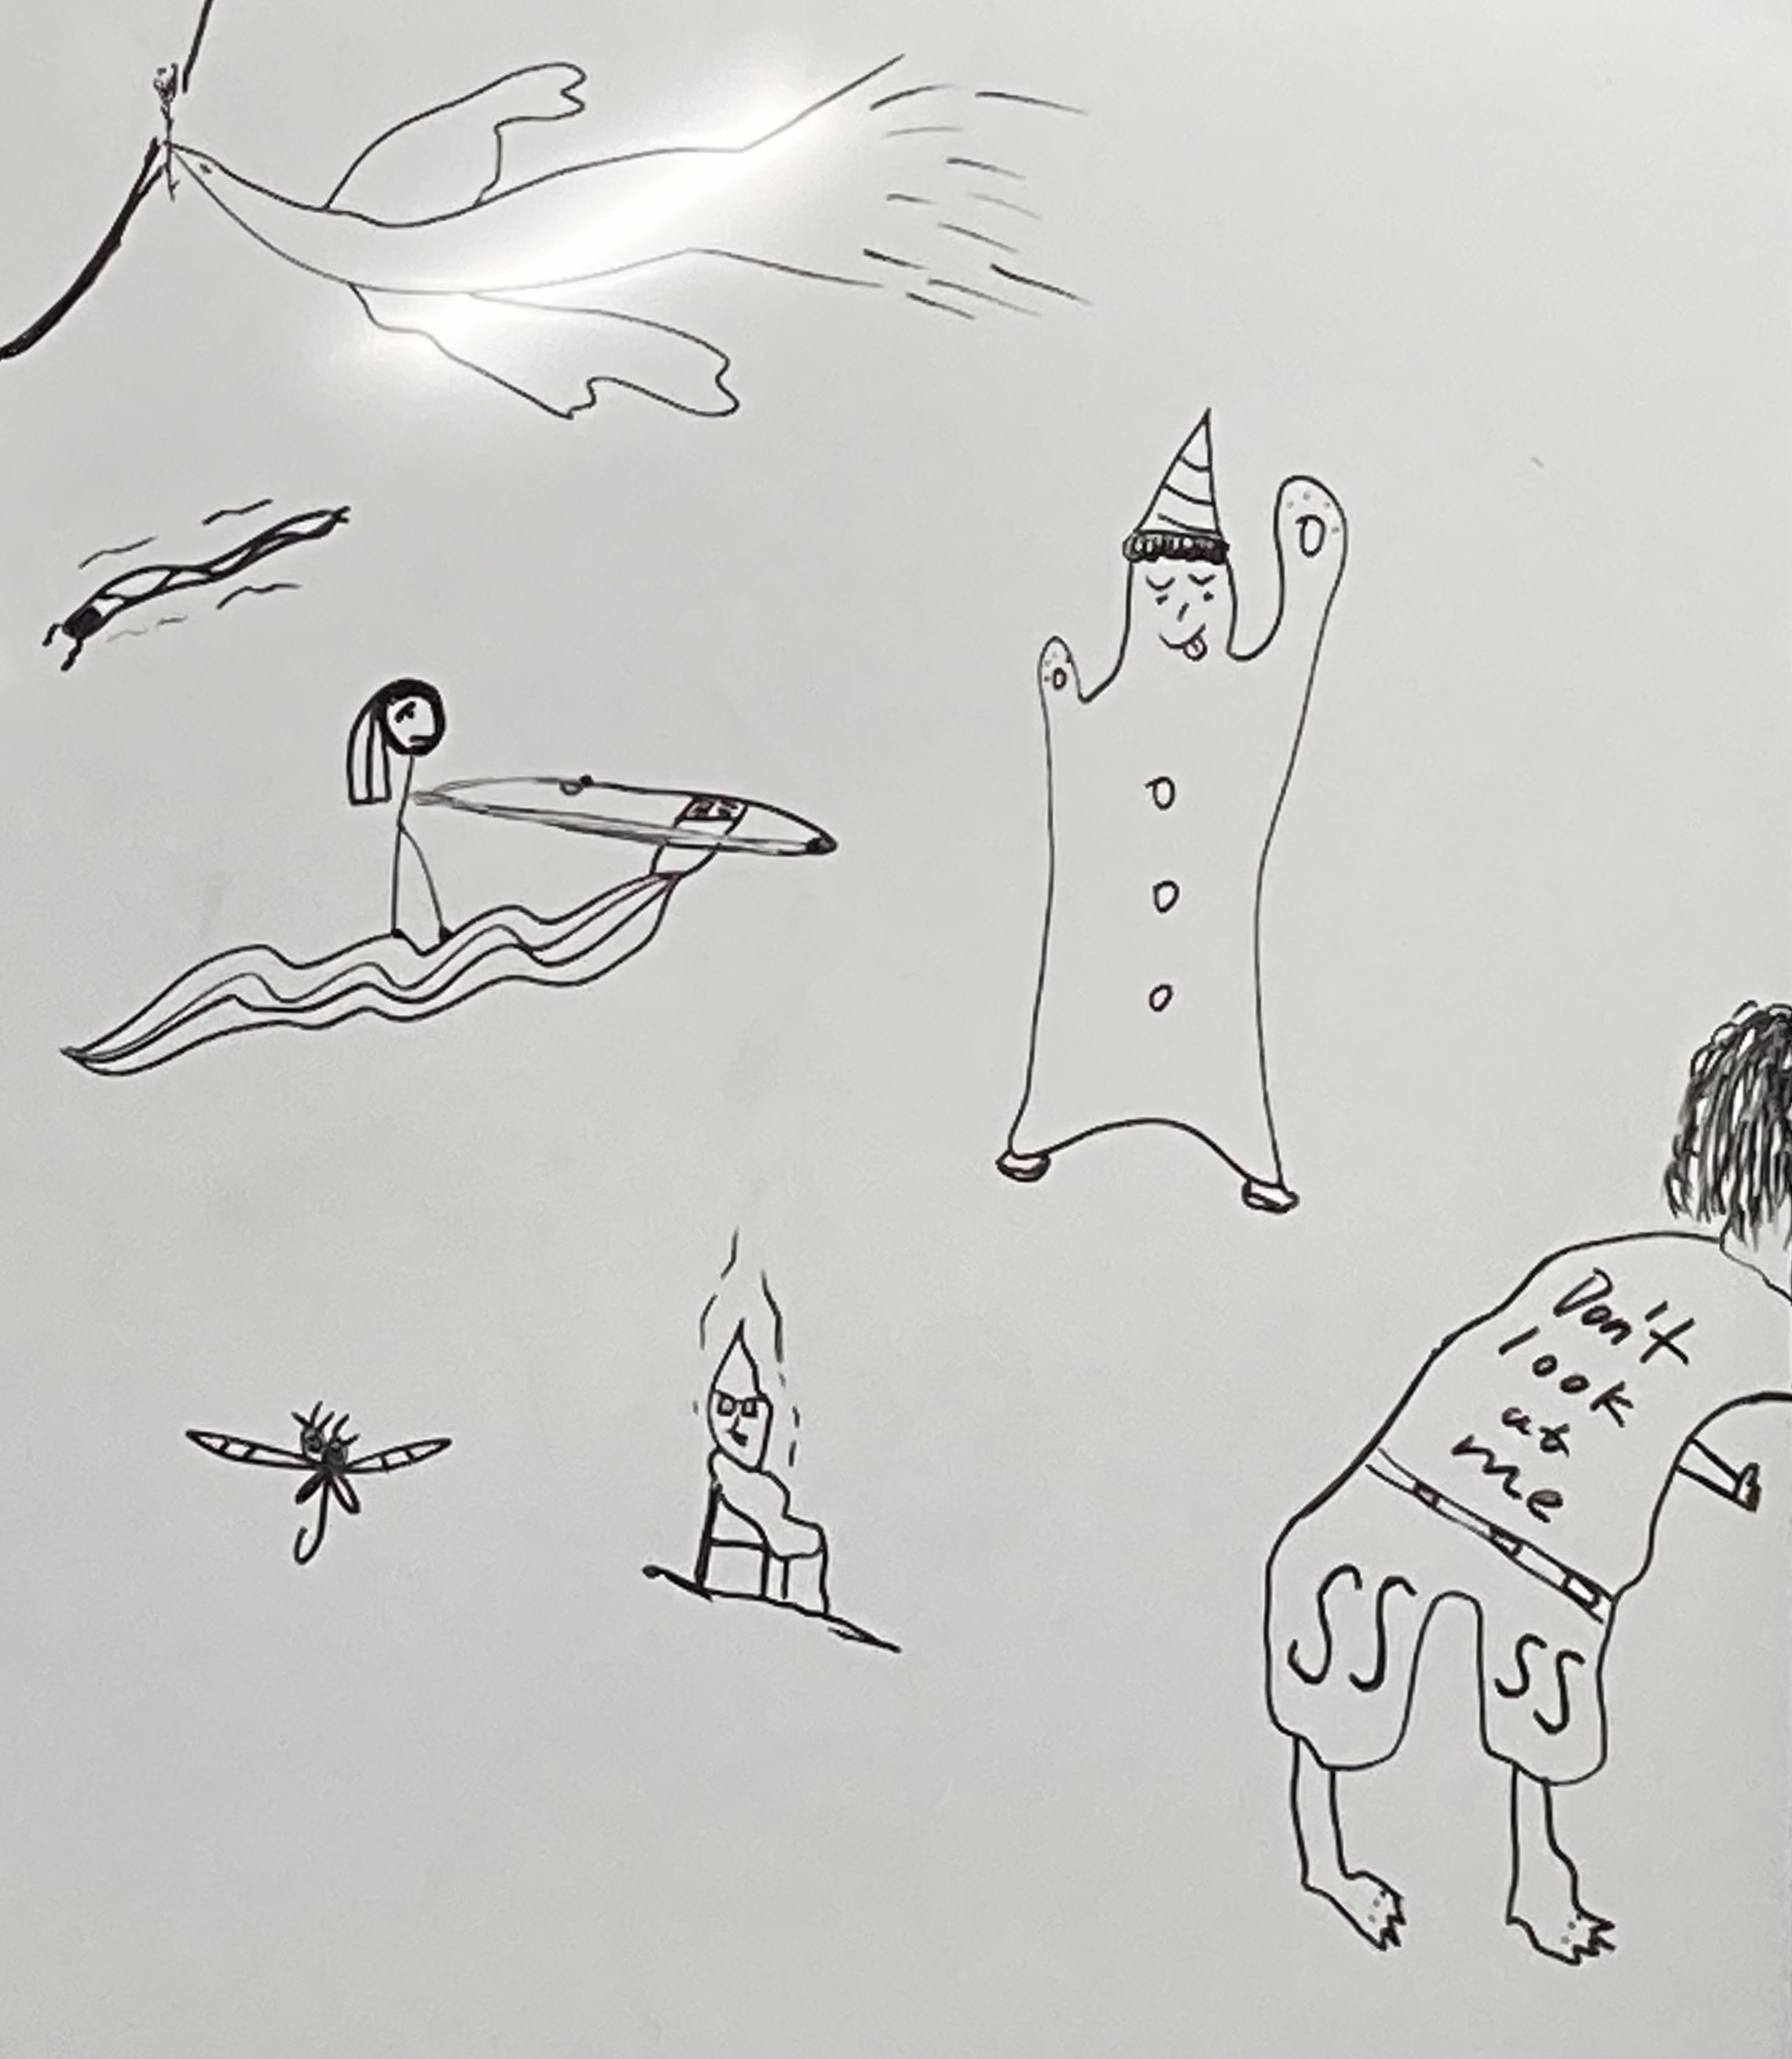 Don't
look
at
me
SS SS